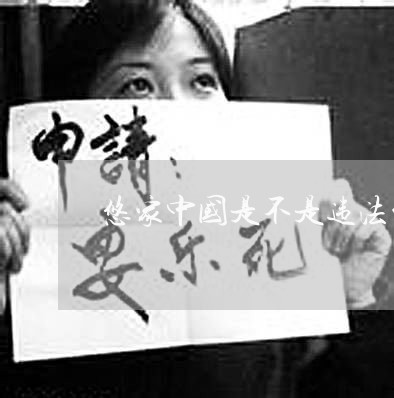 申請：
安乐死
悠家中國是不是違法